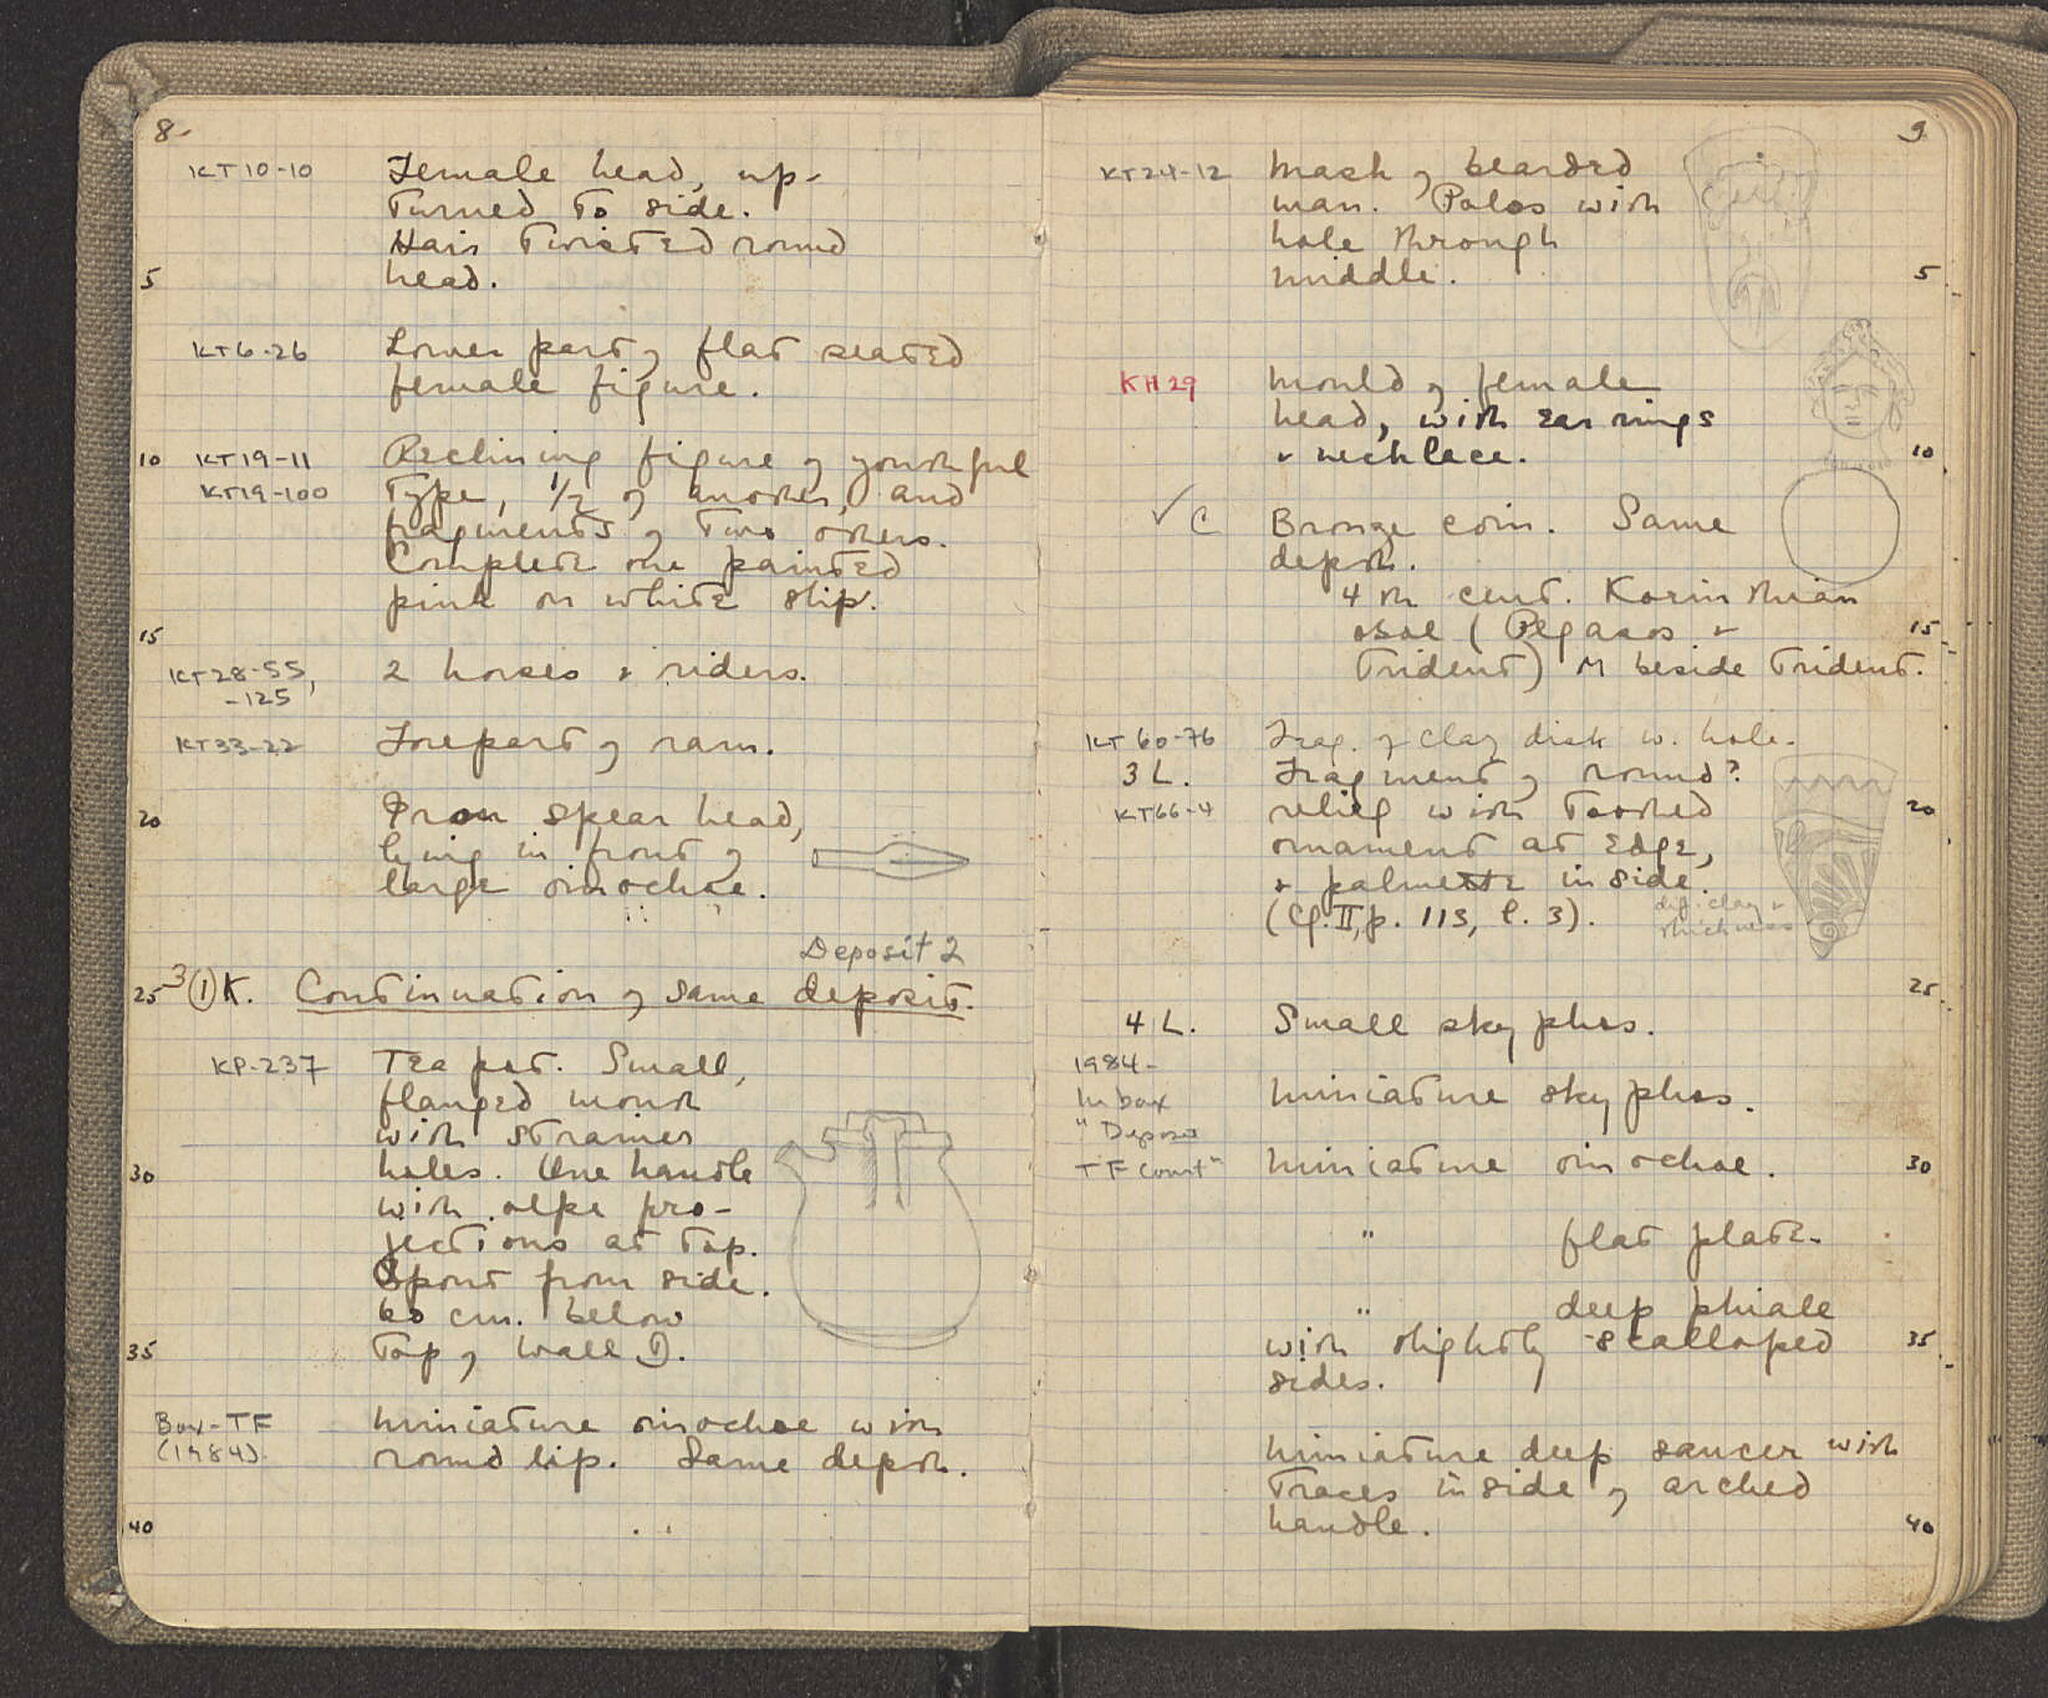 8.
KT10-10 Female head, up-
turned to side.
Hair twisted round
5 head.
KT6-26 Lower part of flat seated
female figure.
10 KT19-11 Reclining figure of youthful
KT19-100 type, 1/2 of another, and
fragments of two others.
Complete one painted
pink on white slip.
15
KT28-55, 2 horses & riders.
-125
KT33-22 Forepart of ram.
20 Iron spear head,
lying in front of
large oinochoe.
Deposit 2
25 3 (1) K. Continuation of same deposit.
KP-237 Tea pot. Small,
flanged mouth
with strainer
30 holes. One handle
with olpe pro-
jections at top.
Spout from side.
60 cm. below
35 top of Wall D.
Box-TF miniature oinochoe with
(1984). round lip. Same depth.
40
9
KT24-12 Mask of bearded
man. Polos with
hole through
middle. 5
KH29 Mould of female
head, with earrings
& necklace. 10
✓ C Bronze coin. Same
depth.
4th cent. Korinthian
obol (Pegasos & 15
Trident) M beside trident.
KT60-76 Frag. of clay disk w. hole.
3 L. Fragment of round?
KT66-4 relief with toothed 20
ornament at edge,
& palmette inside.
(Cf. II, p. 113, l. 3). dif. clay &
thickness
25
4 L. Small skyphos.
1984-
In box miniature skyphos.
"Deposit
TF Court" miniature oinochoe. 30
" flat plate.
" deep phiale
with slightly scalloped 35
sides.
miniature deep saucer with
traces inside of arched
handle. 40